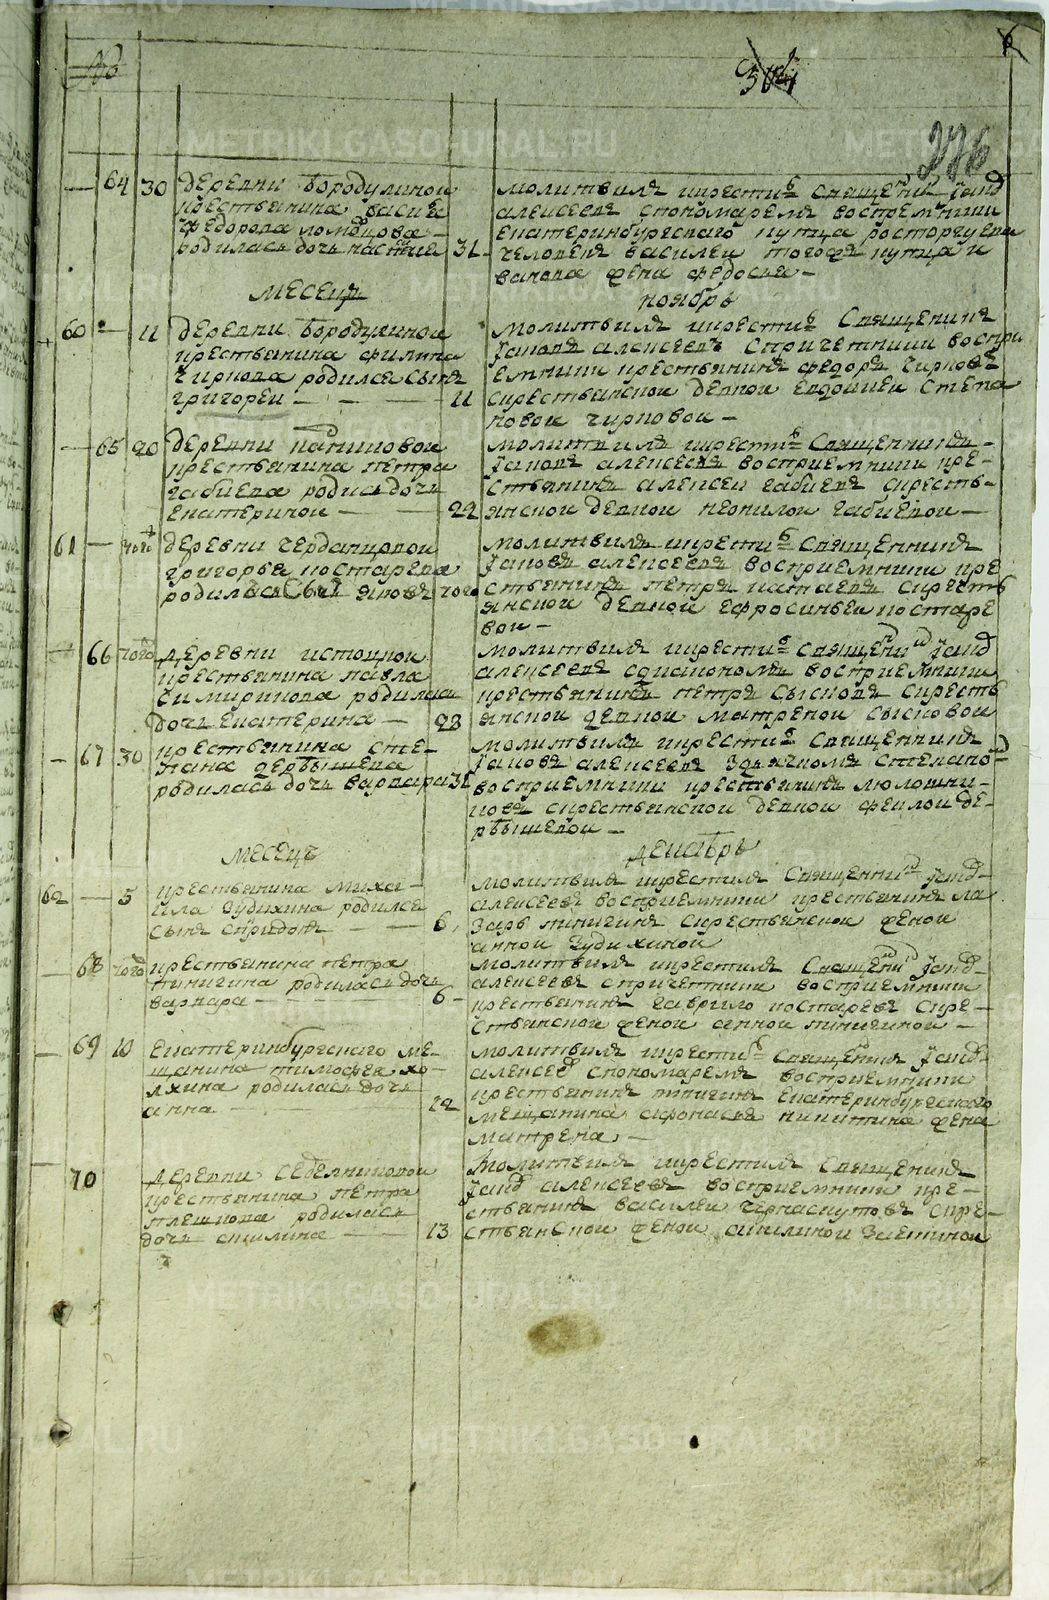 №
304
6
276
64 30 деревни бородулиной
крестьянина васил
федорова ломовцова
родилась дочь настасия 31
молитвилъ и крести священи Iаков
алексеевъ спономаремъ восприемники
екатеринбургскаго купца росторгуева
человекъ василеи тогоже купца и
ванова жена федосья
месецъ ноябрь
60 11 деревни бородулиной
крестьянина филипа
чиркова родился сынъ
григореи 11
молитвилъ и крести священикъ
Iаковъ алексеевъ спричетники воспри
емники крестьянинъ федоръ чирковъ
скрестьянской девкои евдокиеи степа
новои чирковои
65 20 деревни паншовои
крестьянина петра
габиева родись дочь
екатериною 22
молитвилъ и крести священникъ
Iаковъ алексеевъ восприемники кре
стьянинъ алексеи габиевъ скресть
янской девкои неонилои габиевои
61 того деревни чердынцовои
григорья костарева
родился сынъ яковъ того
молитвилъ и крести священникъ
Iаковъ алексеевъ восприемники кре
стьянинъ петръ катаевъ скресть
янскои девкои ефросиньеи костаре
вои
66 того деревни истоцкои
крестьянина павла
родилась
дочь екатерина 23
молитвилъ и крести священи Iаков
алексеевъ сдиакономъ восприемники
крестьянинъ петръ сысковъ скресть
янскои девкои матренои сысковои
67 30 крестьянина сте
пана дербышева
родилась дочь варвара 31
молитвилъ и крести священникъ
Iаковъ алексеевъ здьячкомъ степано
восприемники крестьянинъ
новъ скрестьянской девкои феклои де
рбышевои
месецъ декабрь
62 5 крестьянина миха
ила зудихина родился
сынъ спридонъ 6
молитвилъ и крестилъ священни Iаков
алексеевъ восприемники крестьянинъ ла
заръ пинигинъ скрестьянской женои
аннои зудихинои
68 того крестьянина петра
пинигина родилась дочь
варвара 6
молитвилъ и крестилъ священи Iаков
алексеевъ спричетники восприемники
крестьянинъ гаврило костаревъ скре
стьянскои женои аннои пинигинои
69 10 екатеринбургскаго ме
щанина тимофея хо
лкина родилась дочь
анна 12
молитвилъ и крести священикъ Iаков
алексеев спономаремъ восприемники
крестьянинъ пинигинъ екатеринбургскаго
мещанина афонасья никитина жена
матрена
70 деревни седелниковои
крестьянина петра
плешкова родилась
дочь акилина 13
молитвилъ и крестилъ священикъ
Iаков алексеевъ восприемники кре
стьянинъ василеи черноскутовъ скре
стьянскои женои акилинои